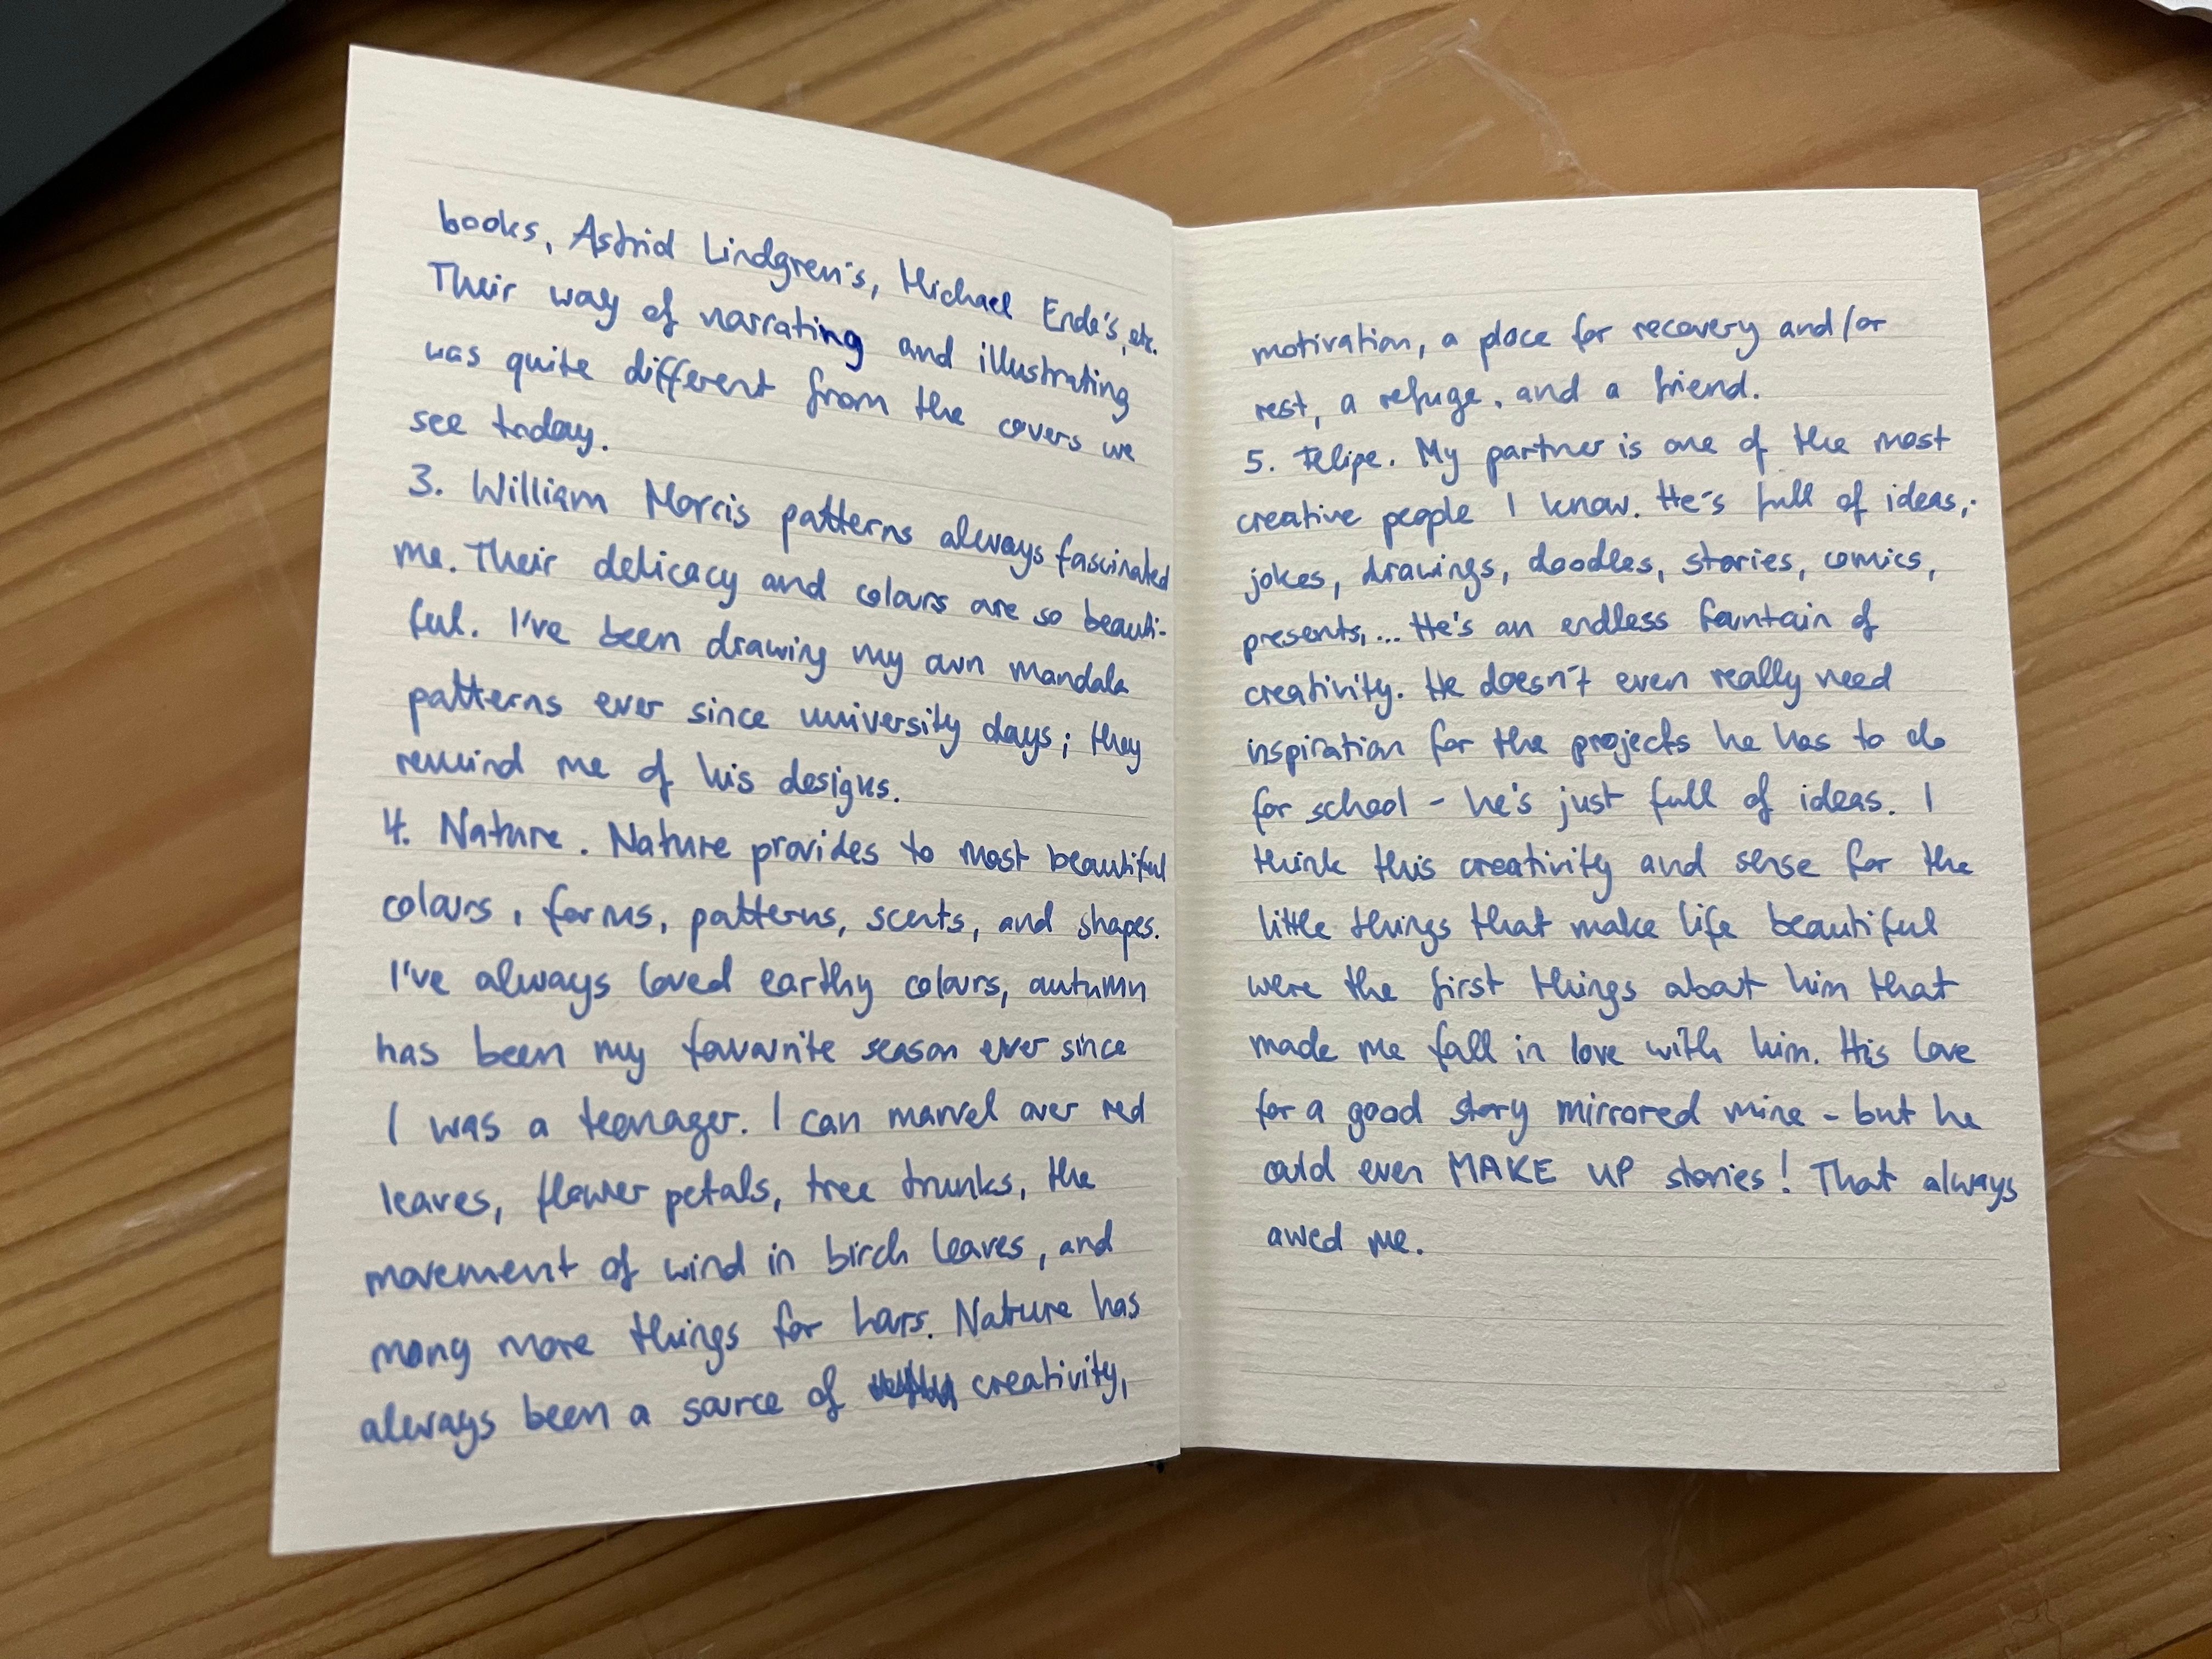 books, Astrid Lindgren's, Michael Ende's, etc.
Their way of narrating and illustrating
was quite different from the covers we
see today.
3. William Morris patterns always fascinated
me. Their delicacy and colours are so beauti-
ful. I've been drawing my own mandala
patterns ever since university days; they
remind me of his designs.
4. Nature. Nature provides to most beautiful
colours, forms, patterns, scents, and shapes.
I've always loved earthy colours, autumn
has been my favourite season ever since
I was a teenager. I can marvel over red
leaves, flower petals, tree trunks, the
movement of wind in birch leaves, and
many more things for hours. Nature has
always been a source of creativity,
motivation, a place for recovery and/or
rest, a refuge, and a friend.
5. Felipe. My partner is one of the most
creative people I know. He's full of ideas,
jokes, drawings, doodles, stories, comics,
presents,... He's an endless fountain of
creativity. He doesn't even really need
inspiration for the projects he has to do
for school - he's just full of ideas. I
think this creativity and sense for the
little things that make life beautiful
were the first things about him that
made me fall in love with him. His love
for a good story mirrored mine - but he
could even MAKE UP stories! That always
awed me.